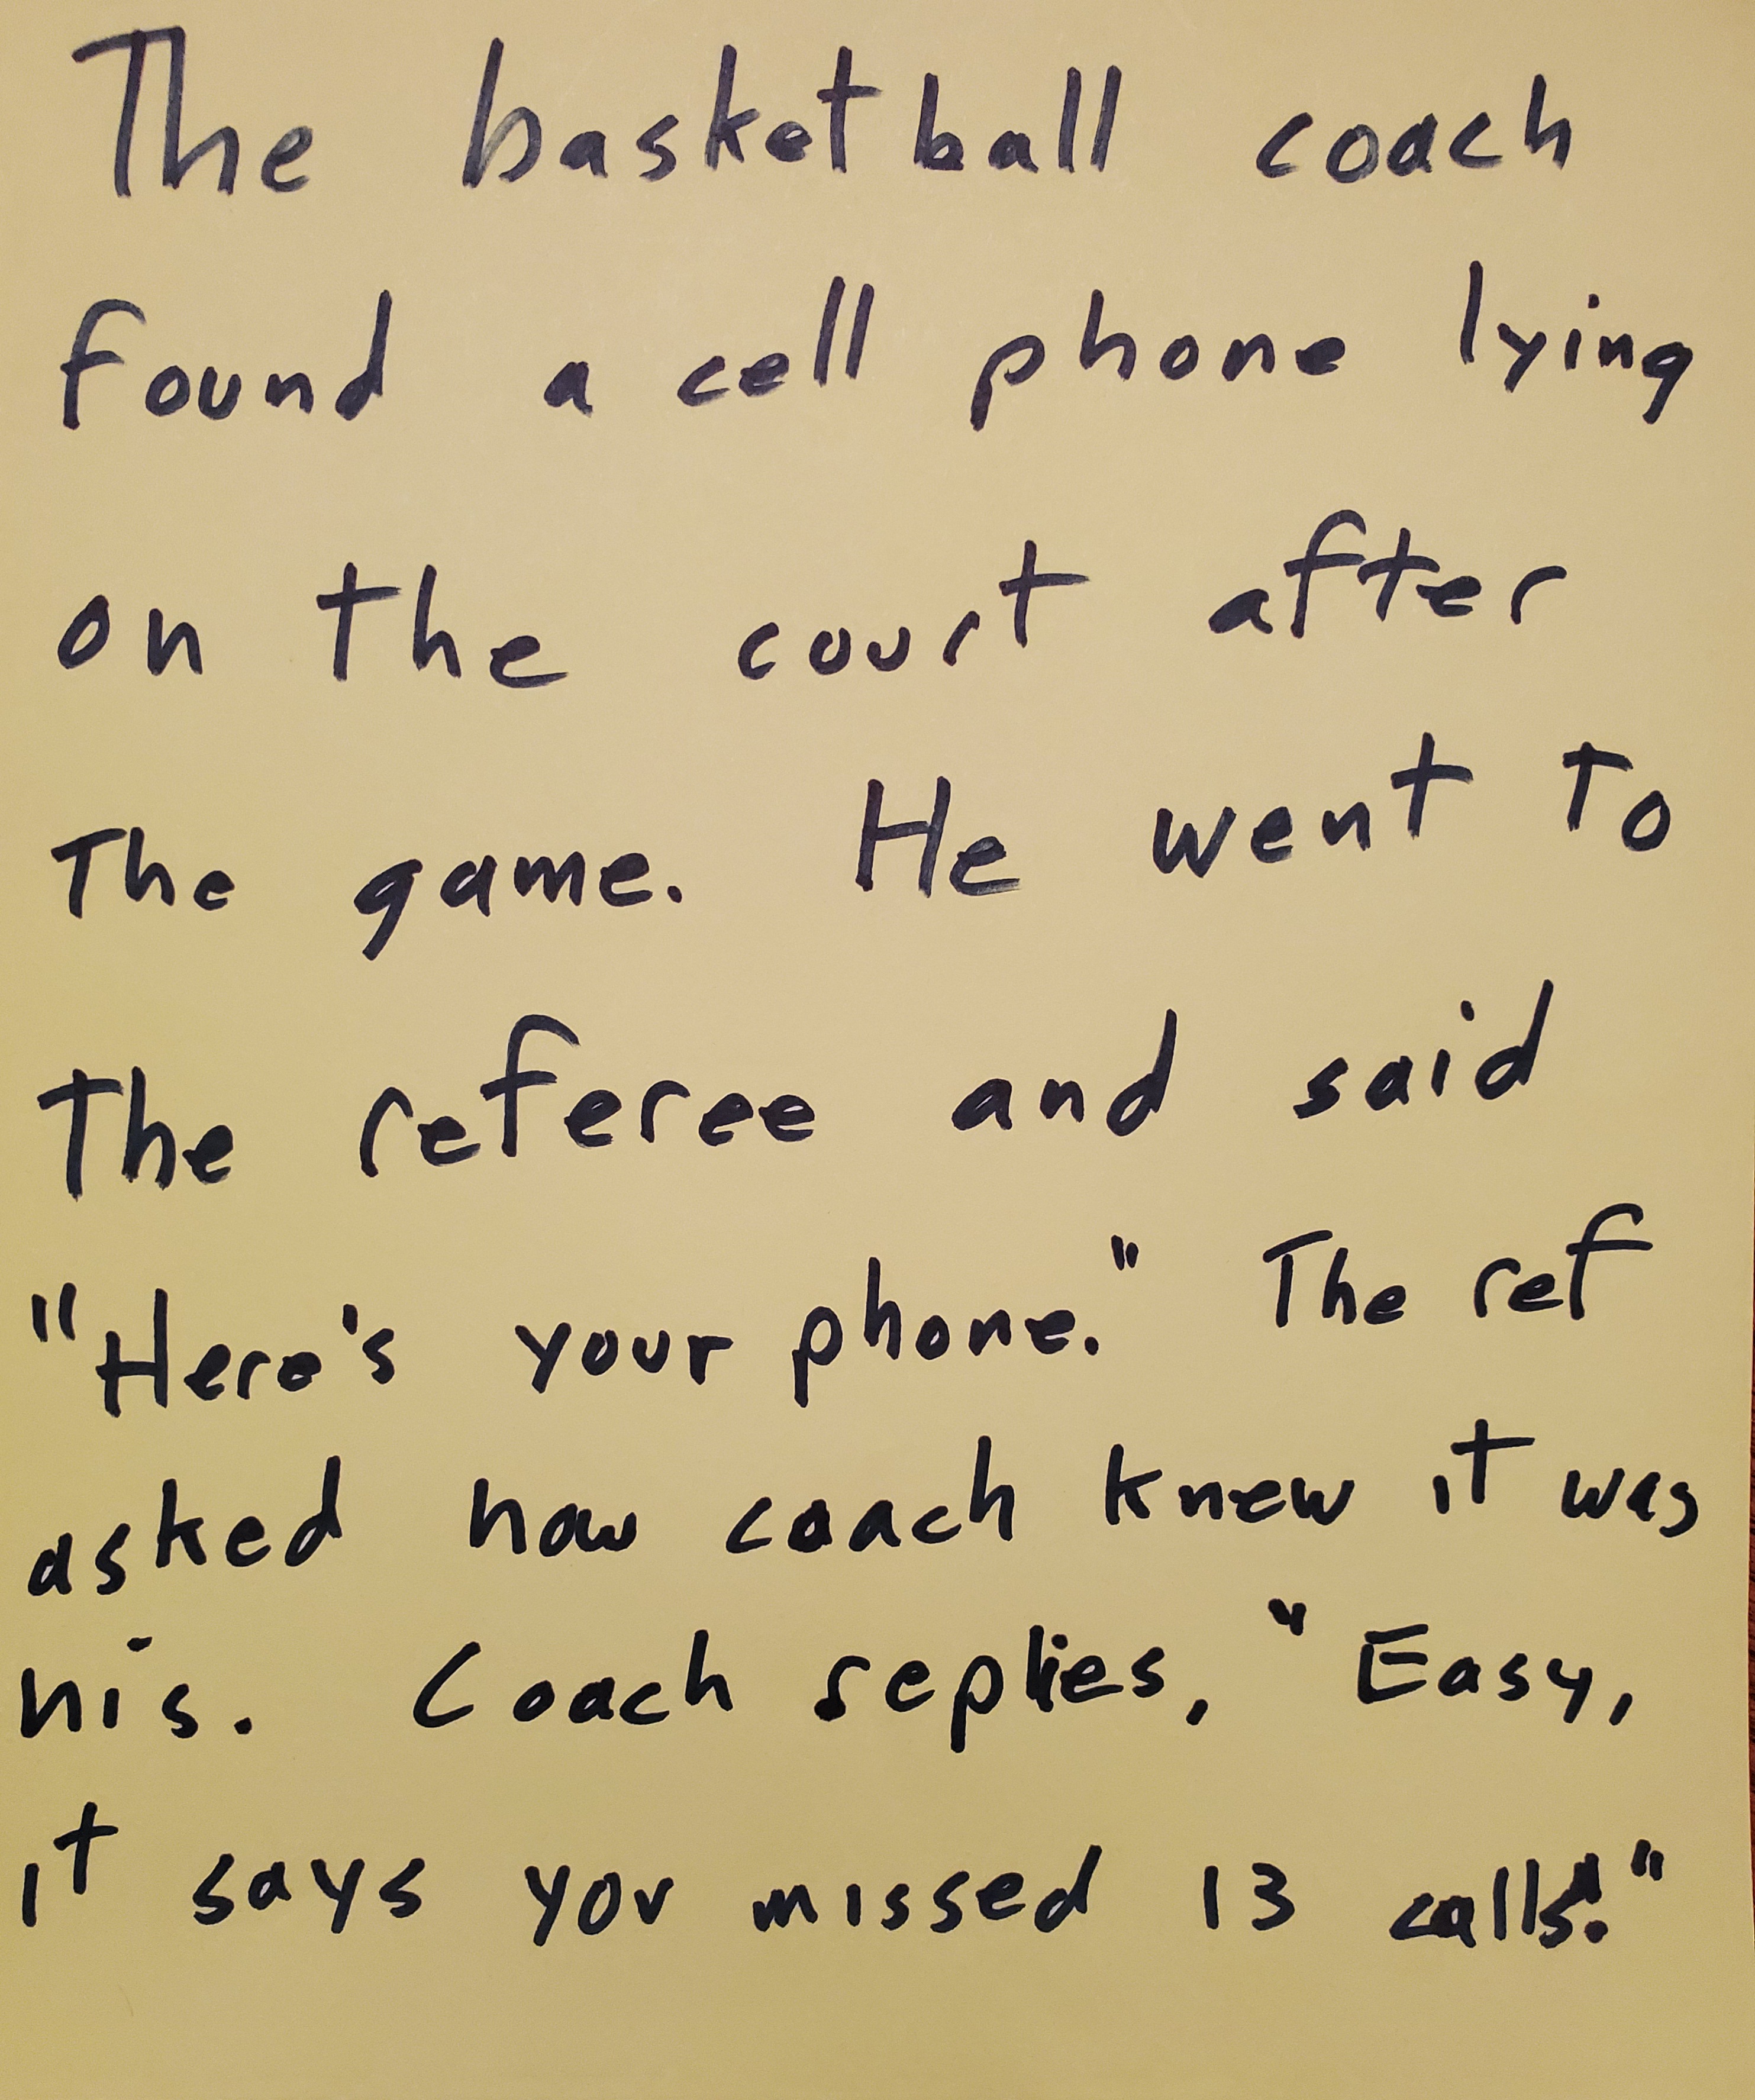 The basketball coach
found a cell phone lying
on the court after
The game. He went to
The referee and said
"Here's your phone." The ref
asked how coach knew it was
his. Coach replies, "Easy,
it says you missed 13 calls!"